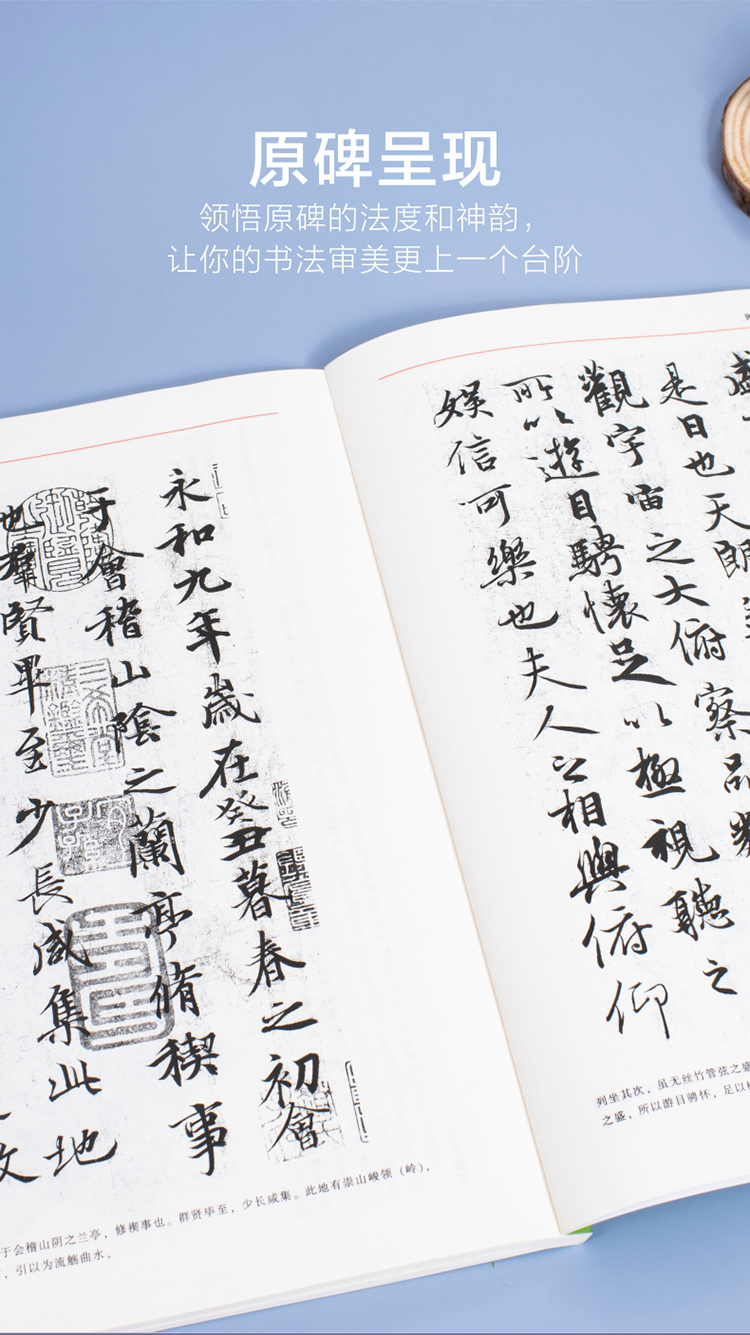 原碑呈现
领悟原碑的法度和神韵，
让你的书法审美更上一个台阶
永和九年歲在癸丑暮春之初會
于會稽山陰之蘭亭脩禊事
也羣賢畢至少長咸集此地
于会稽山阴之兰亭，修禊事也。群贤毕至，少长咸集。此地有崇山峻领（岭），
，引以为流觞曲水，
是日也天朗
觀宇宙之大俯察品類
所以遊目騁懷足以極視聽之
娛信可樂也夫人之相與俯仰
列坐其次，虽无丝竹管弦之盛
之盛，所以游目骋怀，足以极